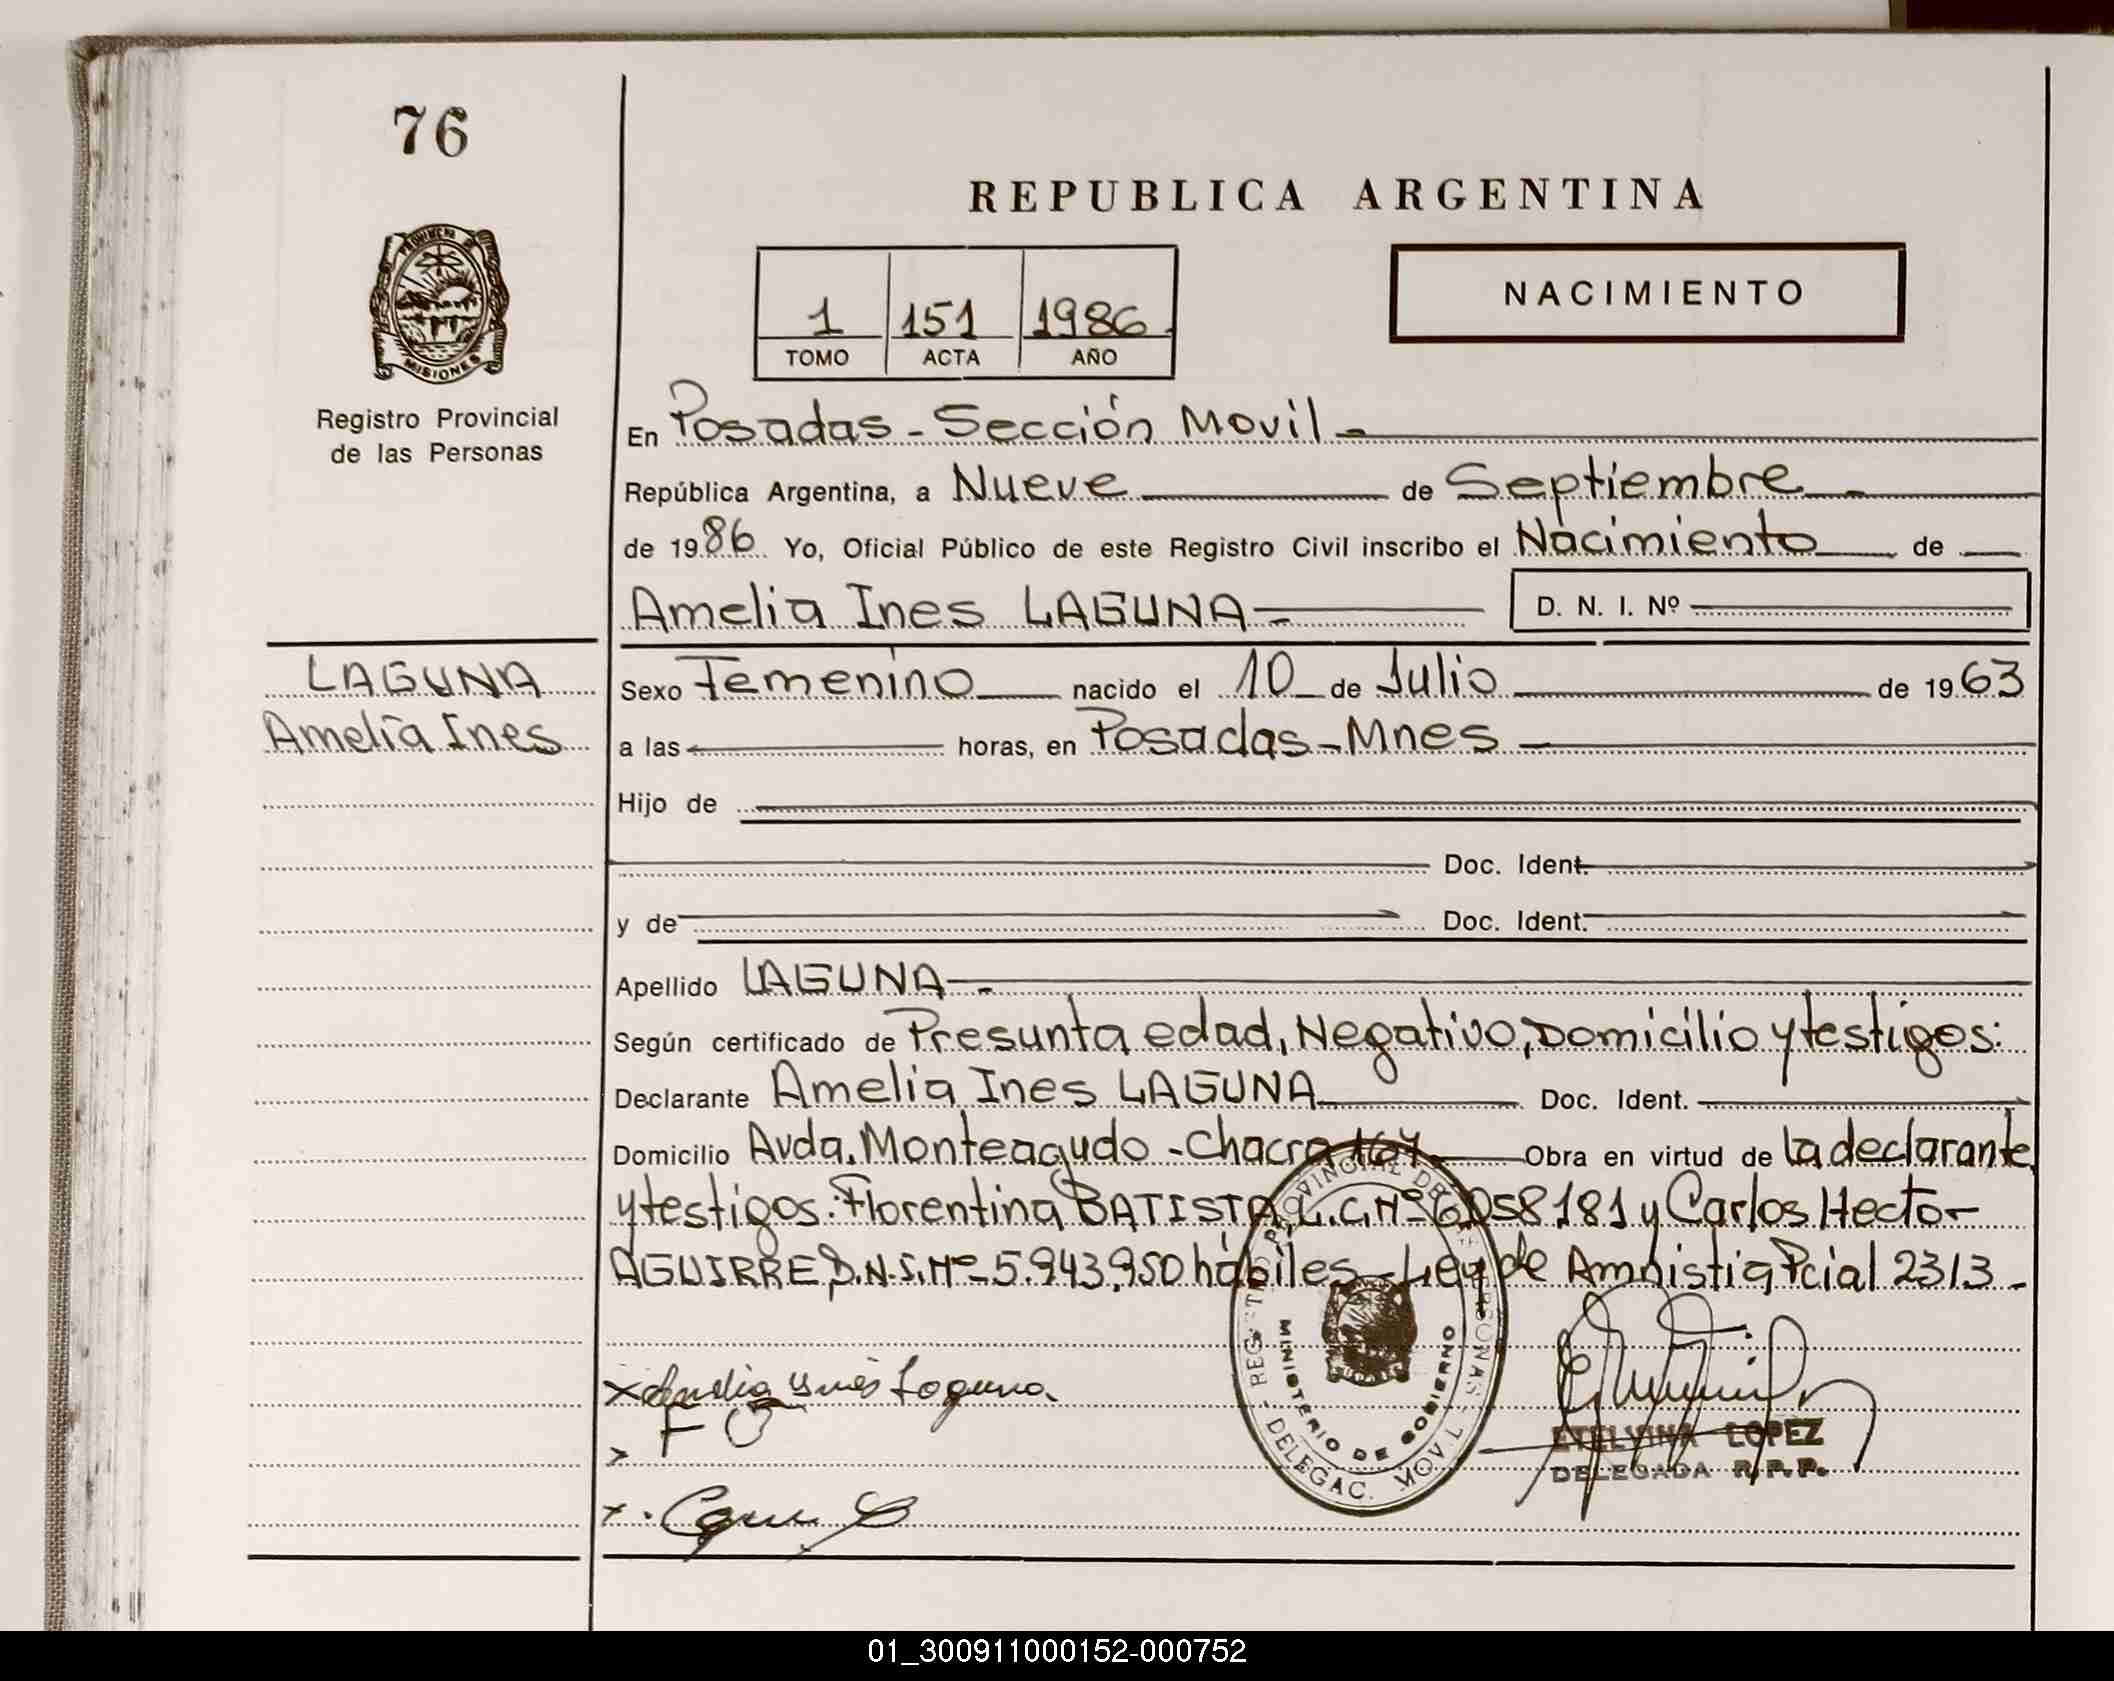 76
REPUBLICA ARGENTINA
PROVINCIA DE
MISIONES
1 151 1986
TOMO ACTA AÑO
NACIMIENTO
Registro Provincial
de las Personas
En Posadas - Sección Movil -
República Argentina, a Nueve de Septiembre -
de 1986 Yo, Oficial Público de este Registro Civil inscribo el Nacimiento de
Amelia Ines LAGUNA - D. N. I. Nº
LAGUNA
Amelia Ines
Sexo Femenino nacido el 10 de Julio de 1963
a las horas, en Posadas - Mnes -
Hijo de
Doc. Ident.
y de Doc. Ident.
Apellido LAGUNA -
Según certificado de Presunta edad, Negativo, Domicilio y testigos:
Declarante Amelia Ines LAGUNA Doc. Ident.
Domicilio Avda. Monteagudo - Chacra 167 Obra en virtud de la declarante
y testigos: Florentina BATISTA, L.C. Nº 6.058181 y Carlos Hector
AGUIRRE, D.N.I. Nº 5.943.950 hábiles - Ley de Amnistia Pcial 2313 -
REGISTRO PROVINCIAL DE LAS PERSONAS - DELEGAC. MOVIL -
MINISTERIO DE GOBIERNO
x Amelia Ynés Laguna
x F
x.
ETELVINA LOPEZ
DELEGADA R.P.P.
01_300911000152-000752